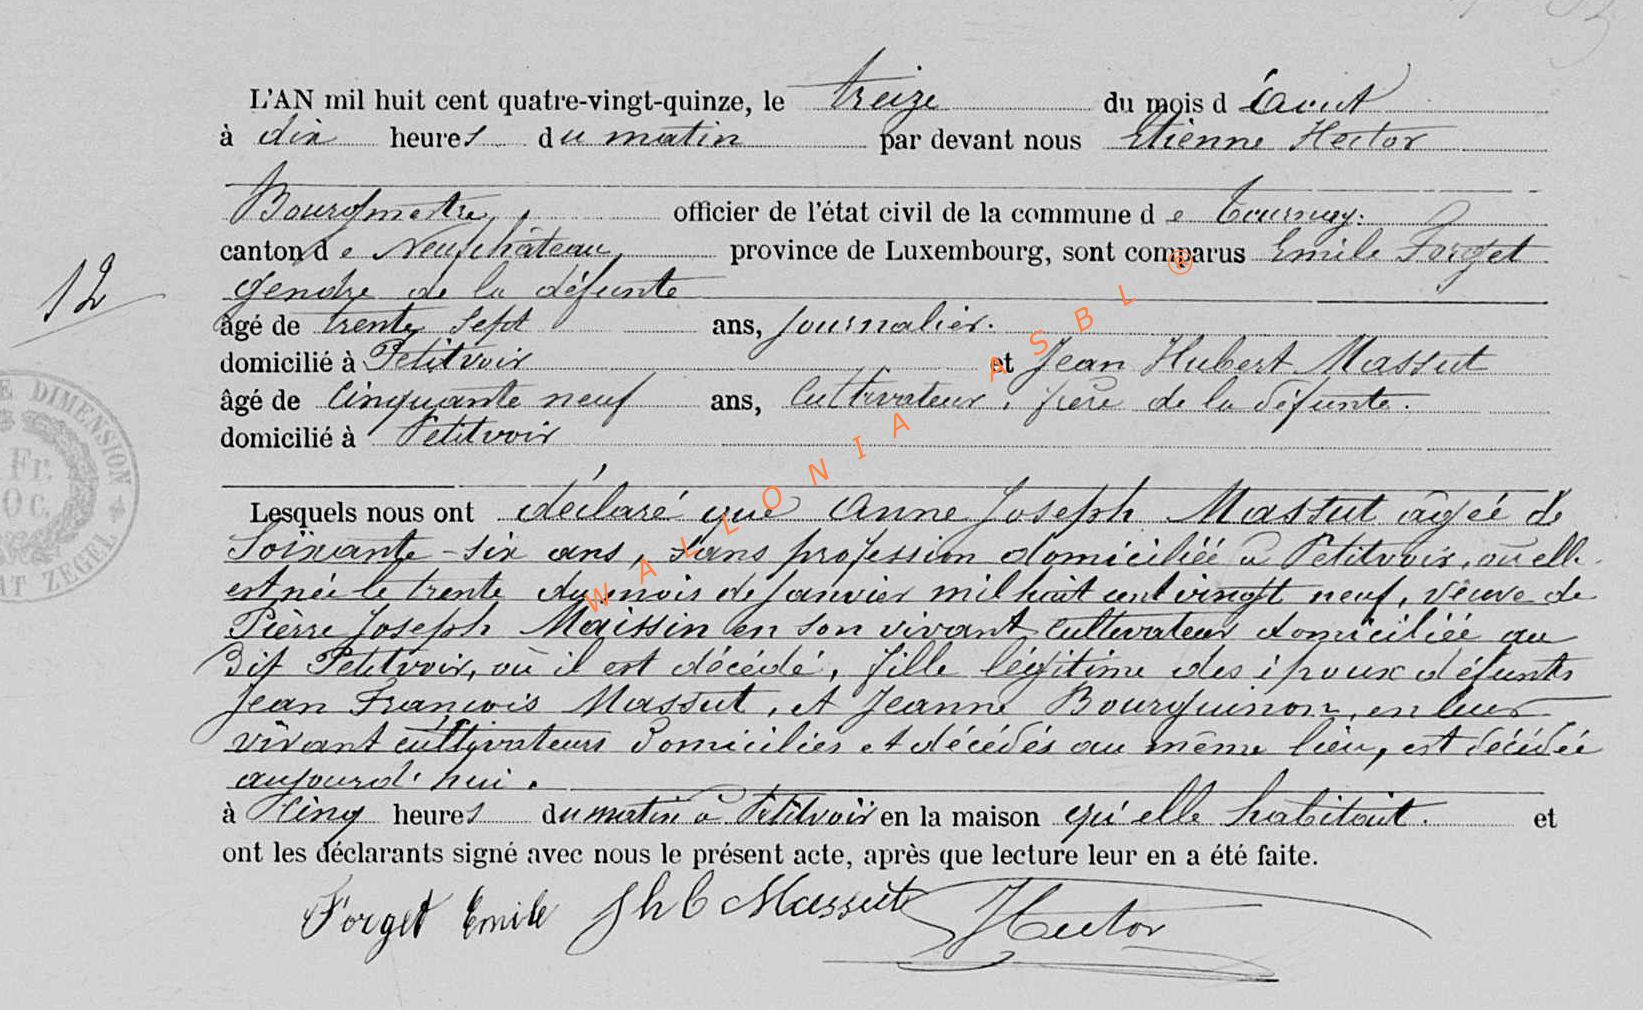 L'AN mil huit cent quatre-vingt-quinze, le treize du mois d'août
à dix heures du matin par devant nous Etienne Hector
Bourgmestre, officier de l'état civil de la commune de Tournay.
canton de Neufchâteau province de Luxembourg, sont comparus Emile Forget
gendre de la défunte
âgé de trente sept ans, journalier.
12
domicilié à Petitvoir et Jean Hubert Massut
âgé de Cinquante neuf ans, Cultivateur, frère de la défunte.
domicilié à Petitvoir
E DIMENSION
Fr.
0 C.
AT ZEGEL
Lesquels nous ont déclaré que Anne Joseph Massut agéé de
Soixante-six ans, sans profession domiciliéé à Petitvoir, où elle
est née le trente du mois de janvier mil huit cent vingt neuf, veuve de
Pierre Joseph Maissin en son vivant cultivateur domiciliéé au
dit Petitvoir, où il est décédé, fille légitime des époux défunts
Jean François Massut, et Jeanne Bourguinon, en leur
vivant cultivateurs domiciliés et décédés au même lieu, est décédéé
aujourd'hui.
à Cinq heures du matin à Petitvoir en la maison qu'elle habitait. et
ont les déclarants signé avec nous le présent acte, après que lecture leur en a été faite.
Forget Emile J h b Massut Hector
WALLONIA ASBL ®